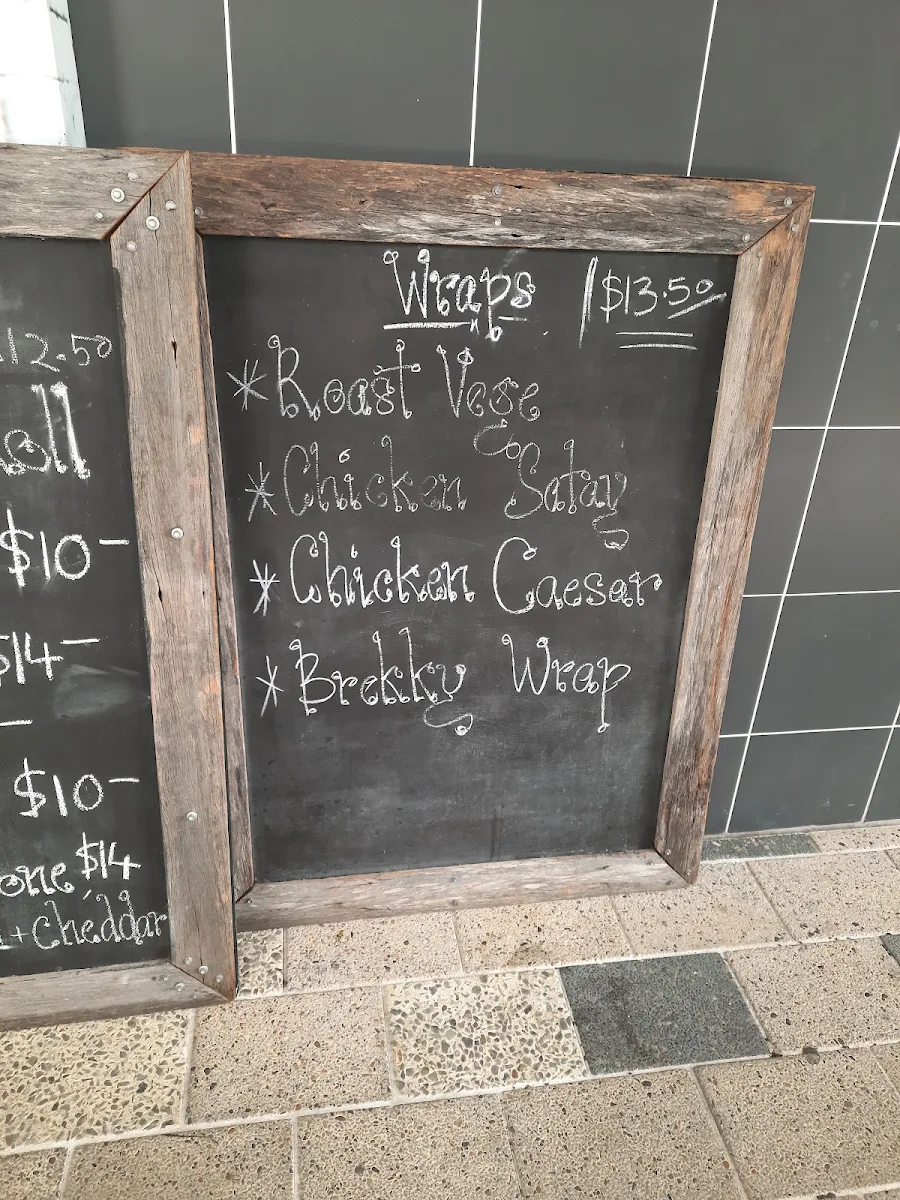 $12.50
$10-
$14-
$10-
$14
+ chéddar
Wraps $13.50
* Roast Vege
* Chicken Satay
* Chicken Caesar
* Brekky Wrap